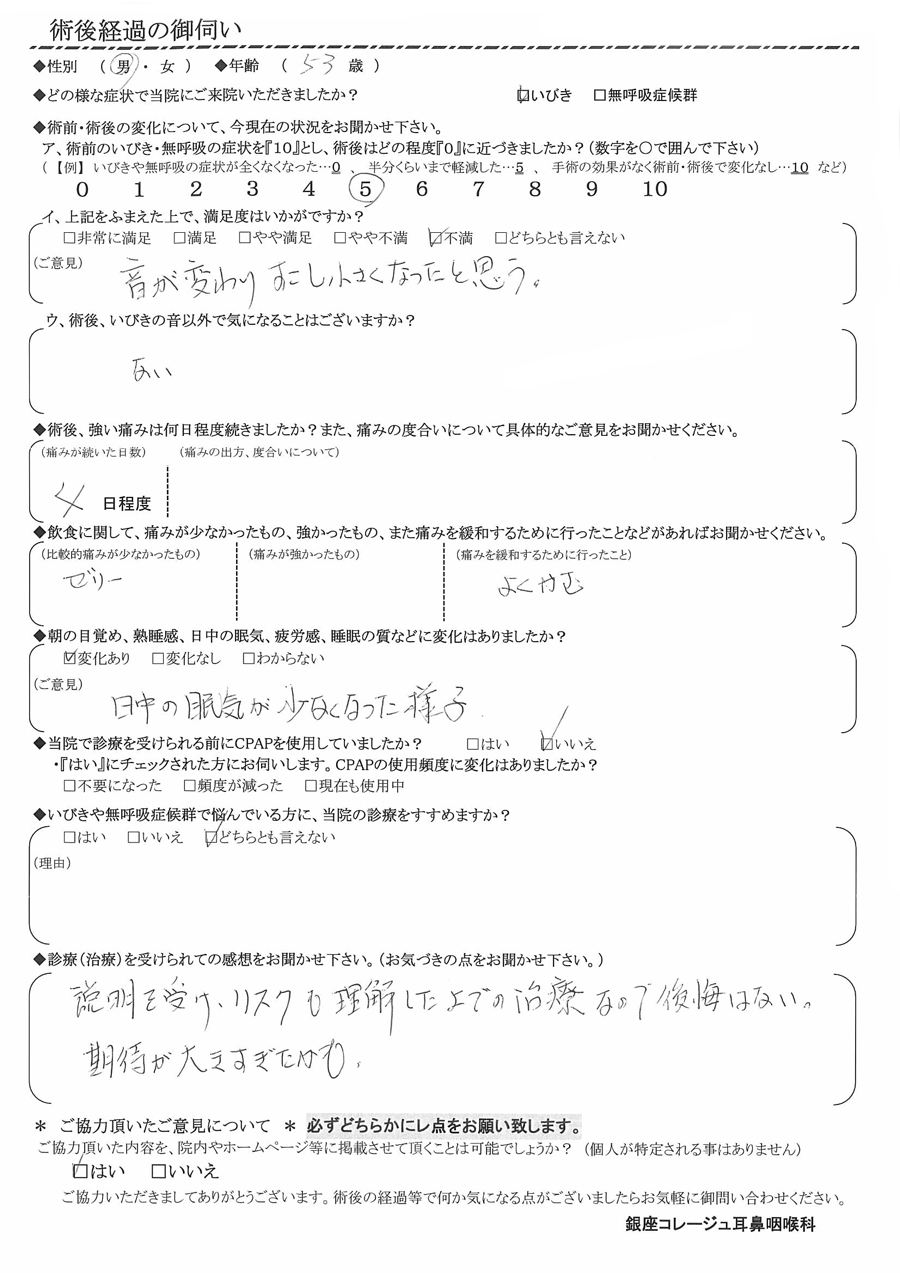 術後経過の御伺い
◆性別 （ 男 ・ 女 ） ◆年齢 （ 53 歳 ）
◆どの様な症状で当院にご来院いただきましたか？ ☑いびき □無呼吸症候群
◆術前・術後の変化について、今現在の状況をお聞かせ下さい。
ア、術前のいびき・無呼吸の症状を『10』とし、術後はどの程度『0』に近づきましたか？（数字を○で囲んで下さい）
（【例】 いびきや無呼吸の症状が全くなくなった…0 、 半分くらいまで軽減した…5 、 手術の効果がなく術前・術後で変化なし…10 など）
0 1 2 3 4 5 6 7 8 9 10
イ、上記をふまえた上で、満足度はいかがですか？
□非常に満足 □満足 □やや満足 □やや不満 ☑不満 □どちらとも言えない
（ご意見）
音が変わり すこし小さくなったと思う。
ウ、術後、いびきの音以外で気になることはございますか？
ない
◆術後、強い痛みは何日程度続きましたか？また、痛みの度合いについて具体的なご意見をお聞かせください。
（痛みが続いた日数） （痛みの出方、度合いについて）
4 日程度
◆飲食に関して、痛みが少なかったもの、強かったもの、また痛みを緩和するために行ったことなどがあればお聞かせください。
（比較的痛みが少なかったもの） （痛みが強かったもの） （痛みを緩和するために行ったこと）
ゼリー よくかむ
◆朝の目覚め、熟睡感、日中の眠気、疲労感、睡眠の質などに変化はありましたか？
☑変化あり □変化なし □わからない
（ご意見）
日中の眠気が少なくなった様子.
◆当院で診療を受けられる前にCPAPを使用していましたか？ □はい ☑いいえ
・『はい』にチェックされた方にお伺いします。CPAPの使用頻度に変化はありましたか？
□不要になった □頻度が減った □現在も使用中
◆いびきや無呼吸症候群で悩んでいる方に、当院の診療をすすめますか？
□はい □いいえ ☑どちらとも言えない
（理由）
◆診療（治療）を受けられての感想をお聞かせ下さい。（お気づきの点をお聞かせ下さい。）
説明を受け、リスクも理解した上での治療なので後悔はない。
期待が大きすぎたかも。
＊ ご協力頂いたご意見について ＊ 必ずどちらかにレ点をお願い致します。
ご協力頂いた内容を、院内やホームページ等に掲載させて頂くことは可能でしょうか？ （個人が特定される事はありません）
☑はい □いいえ
ご協力いただきましてありがとうございます。術後の経過等で何か気になる点がございましたらお気軽に御問い合わせください。
銀座コレージュ耳鼻咽喉科